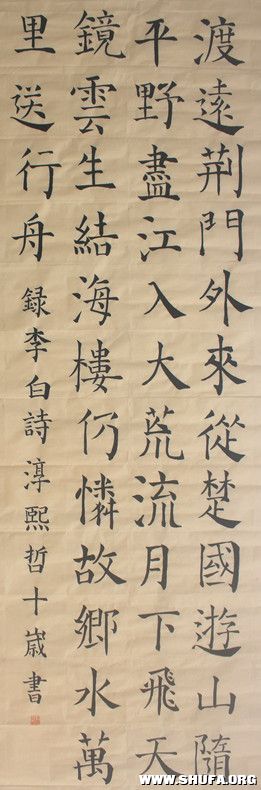 渡遠荊門外來從楚國遊山隋
平野盡江入大荒流月下飛天
鏡雲生結海樓仍憐故鄉水萬
里送行舟 録李白詩淳熙哲十歲書
WWW.SHUFA.ORG
WWW.SHUFA.ORG